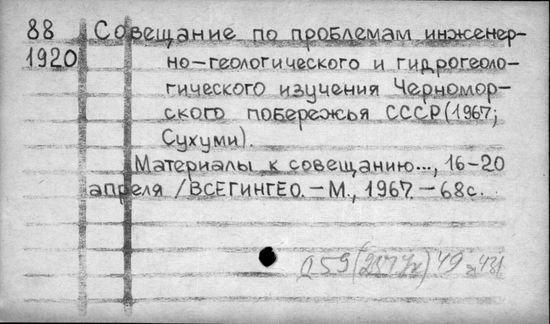 88 Совещание по проблемам инженер-
1920 но-геологического и гидрогеоло-
гического изучения Черномор-
ского побережья СССР (1967;
Сухуми).
Материалы к совещанию..., 16-20
апреля / ВСЕГИНГЕО. - М., 1967. - 68с.